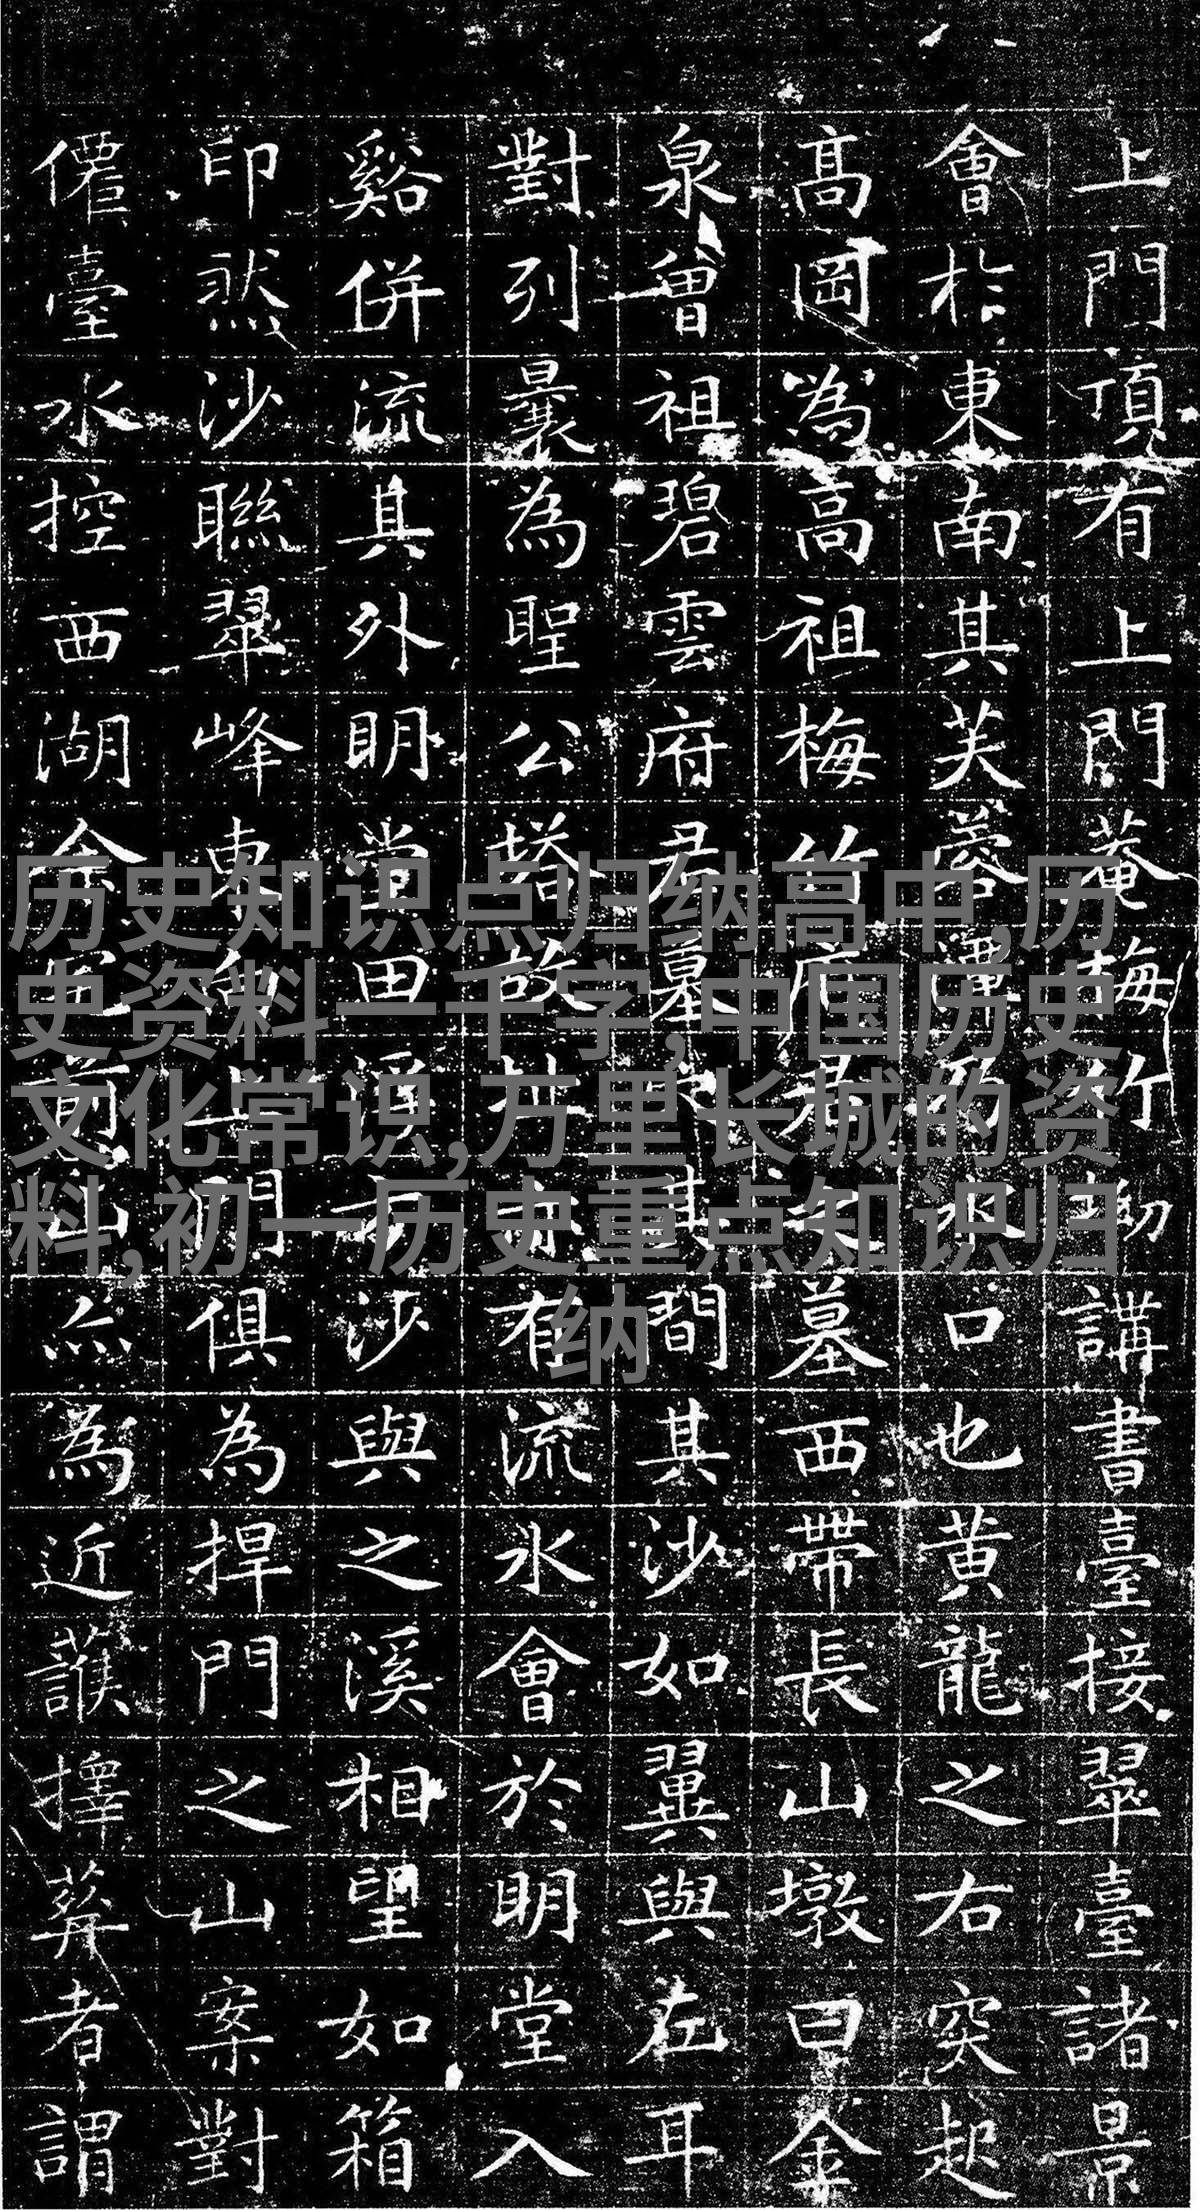 上門頂有上門菴梅竹坳講書臺接翠臺諸景
會於東南其芙蓉潭水口也黄龍之右突起
髙岡為高祖梅竹府君之墓西帶長山墩曰金
泉曾祖碧雲府君墓其間其沙如翼與左耳
對列曩為聖公塔故址亦有流水會於明堂入
谿併流其外明堂田溪沙與之溪相望如箱
印然沙聯翠峰東上門俱為捍門之山案對
僊臺水控西湖前山亦為近擇葬者謂
历史知识点归纳高中,历
史资料一千字,中国历史
文化常识,万里长城的资
料,初一历史重点知识归
纳